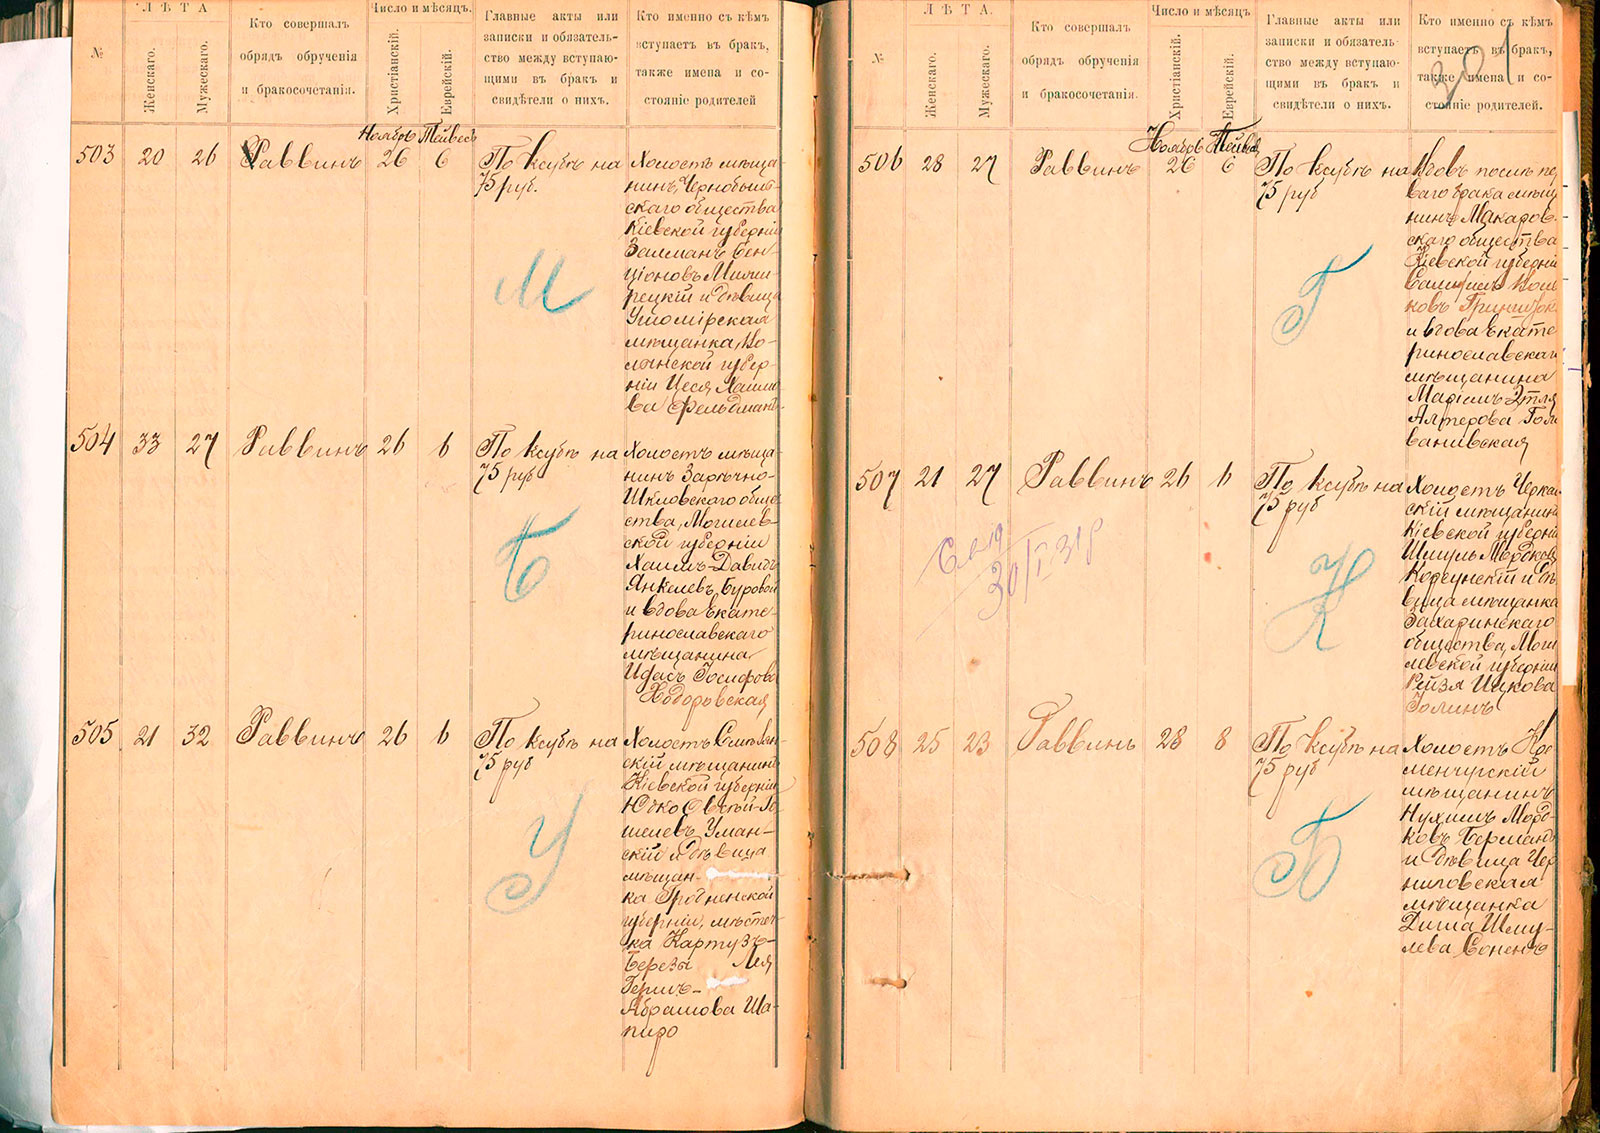 №
ЛѢТА
Женскаго.
Мужескаго.
Кто совершалъ
обрядъ обрученія
и бракосочетанія.
Число и мѣсяцъ.
Христіанскій.
Еврейскій.
Главные акты или
записки и обязатель-
ство между вступаю-
щими въ бракъ и
свидѣтели о нихъ.
Кто именно съ кѣмъ
вступаетъ въ бракъ,
также имена и со-
стояніе родителей
Ноябрь Тейвесъ
503 20 26 Раввинъ 26 6
По Ксубѣ на
75 руб.
Холостъ мѣща
нинъ, Чернобыль-
скаго общества
Кіевской губерніи
Залманъ Бен-
ціоновъ
рецкій и дѣвица
Ушомірская
мѣщанка, Во-
лынской губер-
ніи Цеся Хаимо
ва Фельдманъ
М
504 33 27 Раввинъ 26 6
По Ксубѣ на
75 руб
Холостъ мѣща
нинъ Зарѣчно-
Шкловскаго обще
ства, Могилев-
ской губерніи
Хаимъ-Давидъ
Янкелевъ, Буровой
и вдова Екате-
ринославскаго
мѣщанина
Іосифова
Ходоровская
Б
505 21 32 Раввинъ 26 6
По Ксубѣ на
75 руб
Холостъ
скій мѣщанинъ
Кіевской губерніи
Юдко
шелевъ Уман-
скій и дѣвица
мѣщан-
ка Гродненской
губерніи, мѣстеч-
ка Картузъ-
Березы Лея
Гершъ-
Абрамова Ша-
пиро
У
201
№
ЛѢТА.
Женскаго.
Мужескаго.
Кто совершалъ
обрядъ обрученія
и бракосочетанія.
Число и мѣсяцъ.
Христіанскій.
Еврейскій.
Главные акты или
записки и обязатель
ство между вступаю-
щими въ бракъ и
свидѣтели о нихъ.
Кто именно съ кѣмъ
вступаетъ въ бракъ,
также имена и со-
стояніе родителей.
Ноябрь
506 28 27 Раввинъ 26 6
По Ксубѣ на
75 руб
Вдовъ послѣ пер
ваго брака мѣща
нинъ Макаров-
скаго общества
Кіевской губерніи
ковъ
и вдова Екате
ринославскаго
мѣщанина
Этля
Алтерова Голо
ванивская
Г
507 21 27 Раввинъ 26 6
По Ксубѣ на
75 руб
Холостъ Черкас
скій мѣщанинъ
Кіевской губерніи
Шмуль Мордков
Корсунскій и дѣ
вица мѣщанка
Захаринскаго
общества, Моги
левской губерніи
Рейзя Ицкова
Голинъ
К
508 25 23 Раввинъ 28 8
По Ксубѣ на
75 руб
Холостъ Кре
менчугскій
мѣщанинъ
Нухимъ Мордо
ковъ Берманъ
и дѣвица Чер
ниговская
мѣщанка
Шму-
лева
Б